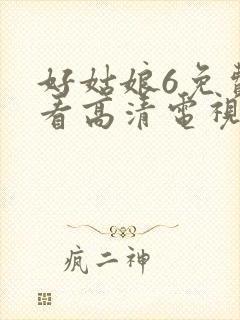 好姑娘6免費
看高清電視
疯二神